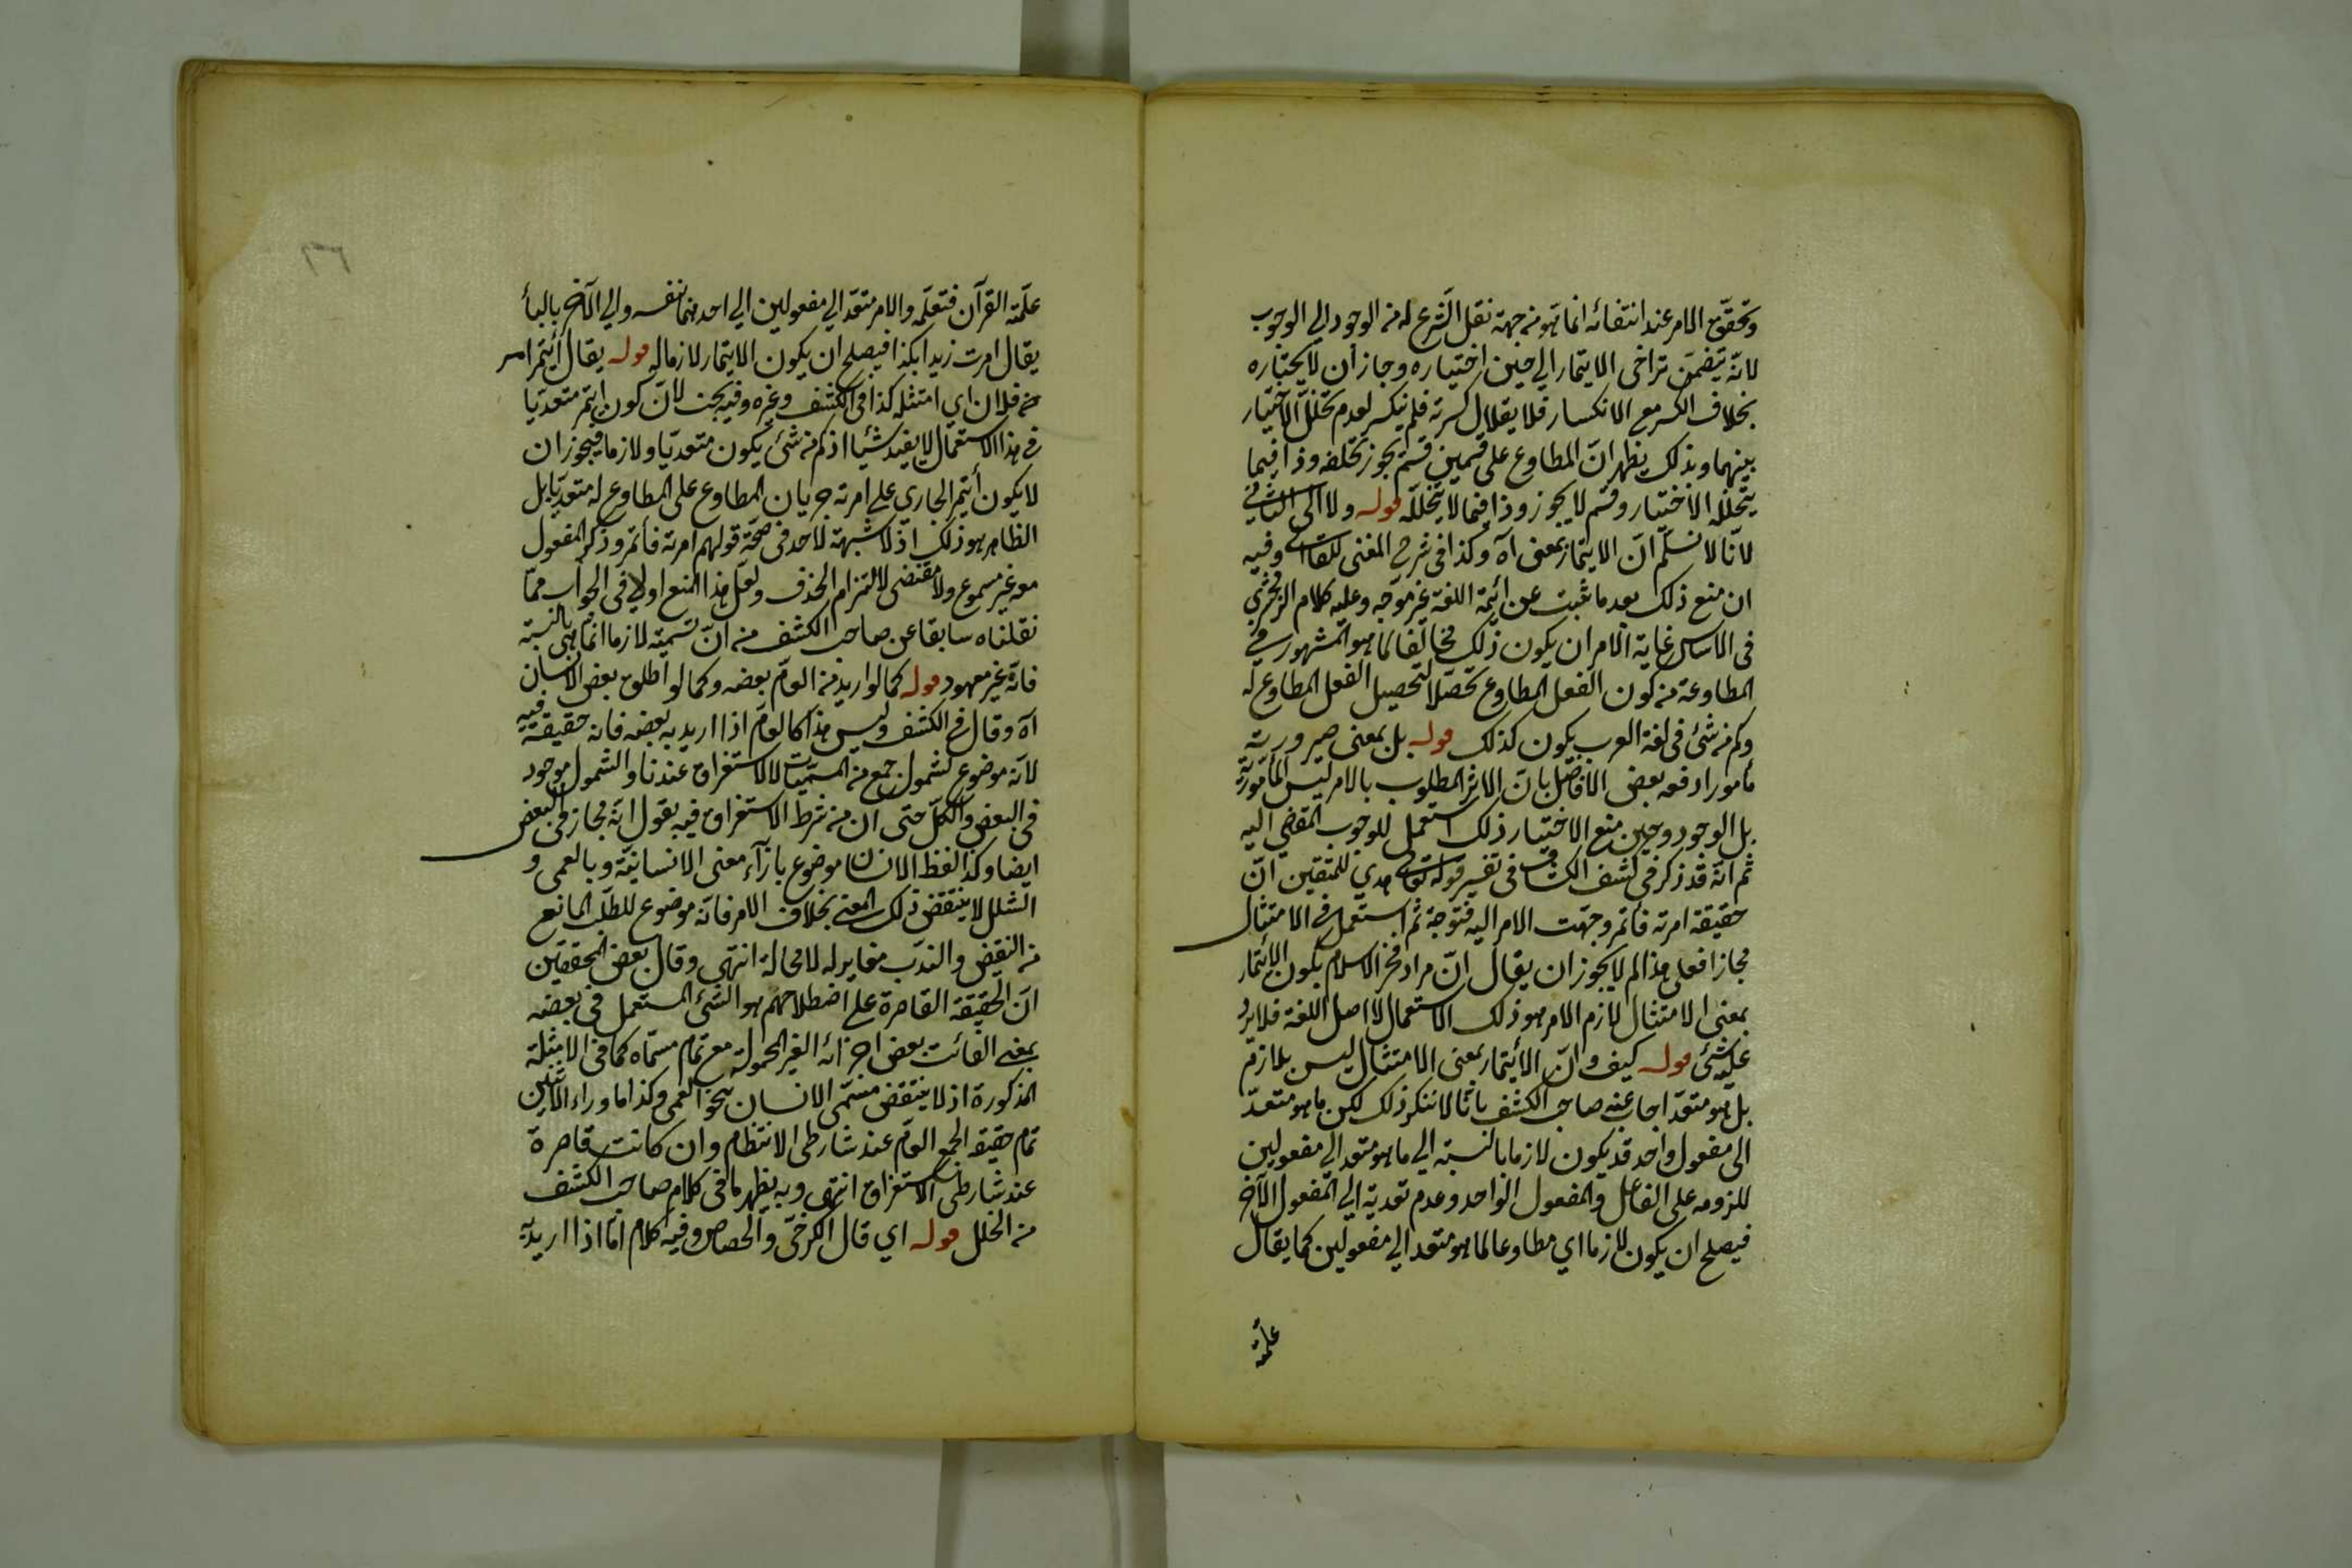 وتحقق الامر عند انتفائه انما هو من جهة نقل الشرع له من الوجود الي الوجوب
لانّه يتضمن تراخى الايتمار الي حين اختياره وجاز أن لا يختاره
بخلاف الكسر مع الانكسار فلا يقال كسرته فلم ينكسر لعدم تخلل الاختيار
بينهما وبذلك يظهر انّ المطاوع على قسمين قسم يجوز تخلفه وذا فيما
يتخلله الاختيار وقسم لا يجوز وذا فيما لا يتخلله قوله ولا الى الثاني
لانّا لا نسلّم انّ الايتمار بمعنى اه وكذا فى شرح المغنى للقاآنى وفيه
ان منع ذلك بعد ما ثبت عن ائمة اللغة غير موجّه وعليه كلام الزمخشري
فى الاساس غاية الامر ان يكون ذلك مخالفا لما هو المشهور في
المطاوعة من كون الفعل المطاوع تحصّلا لتحصيل الفعل المطاوع له
وكم من شئ فى لغة العرب يكون كذلك قوله بل بمعنى صيرورته
مأمورا دفعه بعض الافاضل بانّ الاثر المطلوب بالامر ليس المأمورية
بل الوجود وحين منع الاختيار ذلك استعمل للوجوب المفضي اليه
ثم انّه قد ذكر فى كشف الكشاف فى تفسير قوله تعالى هدي للمتقين انّ
حقيقة امرته فأتمر وجهت الامر اليه فتوجه ثم استعمل في الامتثال
مجازا فعلى هذا لم لا يجوز ان يقال انّ مراد فخر الاسلام بكون الايتمار
بمعنى الامتثال لازم الامر هو ذلك الاستعمال لا اصل اللغة فلا يرد
عليه شئ قوله كيف وانّ الأيتمار بمعنى الامتثال ليس بلازم
بل هو متعدّ اجاب عنه صاحب الكشف بانّا لا ننكر ذلك لكن ما هو متعدّ
الى مفعول واحد قد يكون لازما بالنسبة الي ما هو متعد الي مفعولين
للزومه على الفاعل والمفعول الواحد وعدم تعديته الي المفعول الآخر
فيصلح ان يكون لازما اي مطاوعا لما هو متعد الي مفعولين كما يقال
علّمته
٣٦
علّمته القرآن فتعلّمه والامر متعدّ الي مفعولين الي احدهما بنفسه والي الآخر بالبأ
يقال امرت زيدا بكذا فيصلح ان يكون الايتمار لازما له قوله يقال أيتمر امر
من فلان اي امتثله كذا فى الكشف وغيره وفيه بحث لانّ كون ايتمر متعديّا
في هذا الاستعمال لا يفيد شيئا اذ كم من شئ يكون متعديّا ولازما فيجوز ان
لا يكون أيتمر الجاري على امرته جريان المطاوع على المطاوع له متعديّا بل
الظاهر هو ذلك اذ لا شبهة لاحد فى صحّة قولهم امرته فأتمر وذكر المفعول
معه غير مسموع ولا مقتضى لالتزام الحذف ولعلّ هذا المنع اولي فى الجواب ممّا
نقلناه سابقا عن صاحب الكشف من انّ تسميته لازما انّما هى بالنسبة
فانّه غير معهود قوله كما لو اريد من العامّ بعضه وكما لو اطلق بعض الانسان
اه وقال في الكشف وليس هذا كالعامّ اذا اريد به بعضه فانه حقيقة فيه
لانّه موضوع لشمول جمع من المسمّيات لا للاستغراق عندنا والشمول موجود
فى البعض والكلّ حتى ان من شرط الاستغراق فيه يقول انّه مجاز فى البعض
ايضا وكذا لفظ الانسان موضوع بازآء معنى الانسانيّة وبالعمى و
الشلل لا ينتقض ذلك المعنى بخلاف الامر فانّه موضوع للطلب المانع
من النقيض والندب مغاير له لا محالة انتهى وقال بعض المحققين
انّ الحقيقة القاصرة على اصطلاحهم هو الشئ المستعمل فى بعضه
بمعنى الفائت بعض اجزائه الغير المحمولة مع تمام مسمّاه كما فى الامثلة
المذكورة اذ لا ينتقض مسمّى الانسان بنحو العمى وكذا ما وراء الاثنين
تمام حقيقة الجمع العامّ عند شارطى الانتظام وان كانت قاصرة
عند شارطى الاستغراق انتهى وبه يظهر ما فى كلام صاحب الكشف
من الخلل قوله اي قال الكرخىّ والجصاص وفيه كلام امّا اذا اريد به